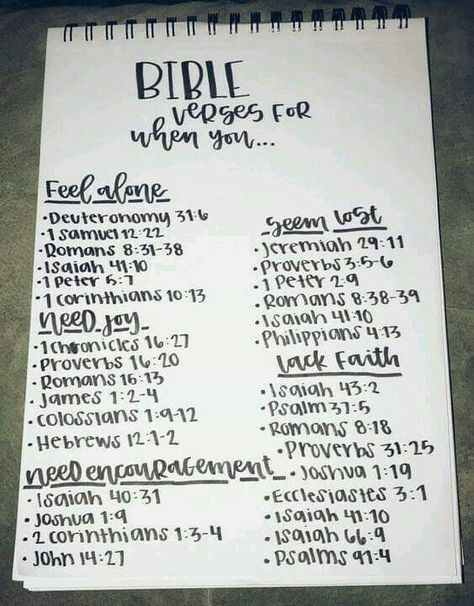 BIBLE
verses for
when you...
Feel alone
• Deuteronomy 31:6
• 1 Samuel 12:22
• Romans 8:31-38
• Isaiah 41:10
• 1 Peter 5:7
• 1 Corinthians 10:13
Need joy
• 1 Chronicles 16:27
• Proverbs 16:20
• Romans 15:13
• James 1:2-4
• Colossians 1:9-12
• Hebrews 12:1-2
need encouragement
• Isaiah 40:31
• Joshua 1:9
• 2 Corinthians 1:3-4
• John 14:27
seem lost
• Jeremiah 29:11
• Proverbs 3:5-6
• 1 Peter 2:9
• Romans 8:38-39
• Isaiah 41:10
• Philippians 4:13
lack faith
• Isaiah 43:2
• Psalm 37:5
• Romans 8:18
• Proverbs 31:25
• Joshua 1:19
• Ecclesiastes 3:1
• Isaiah 41:10
• Isaiah 66:9
• Psalms 91:4